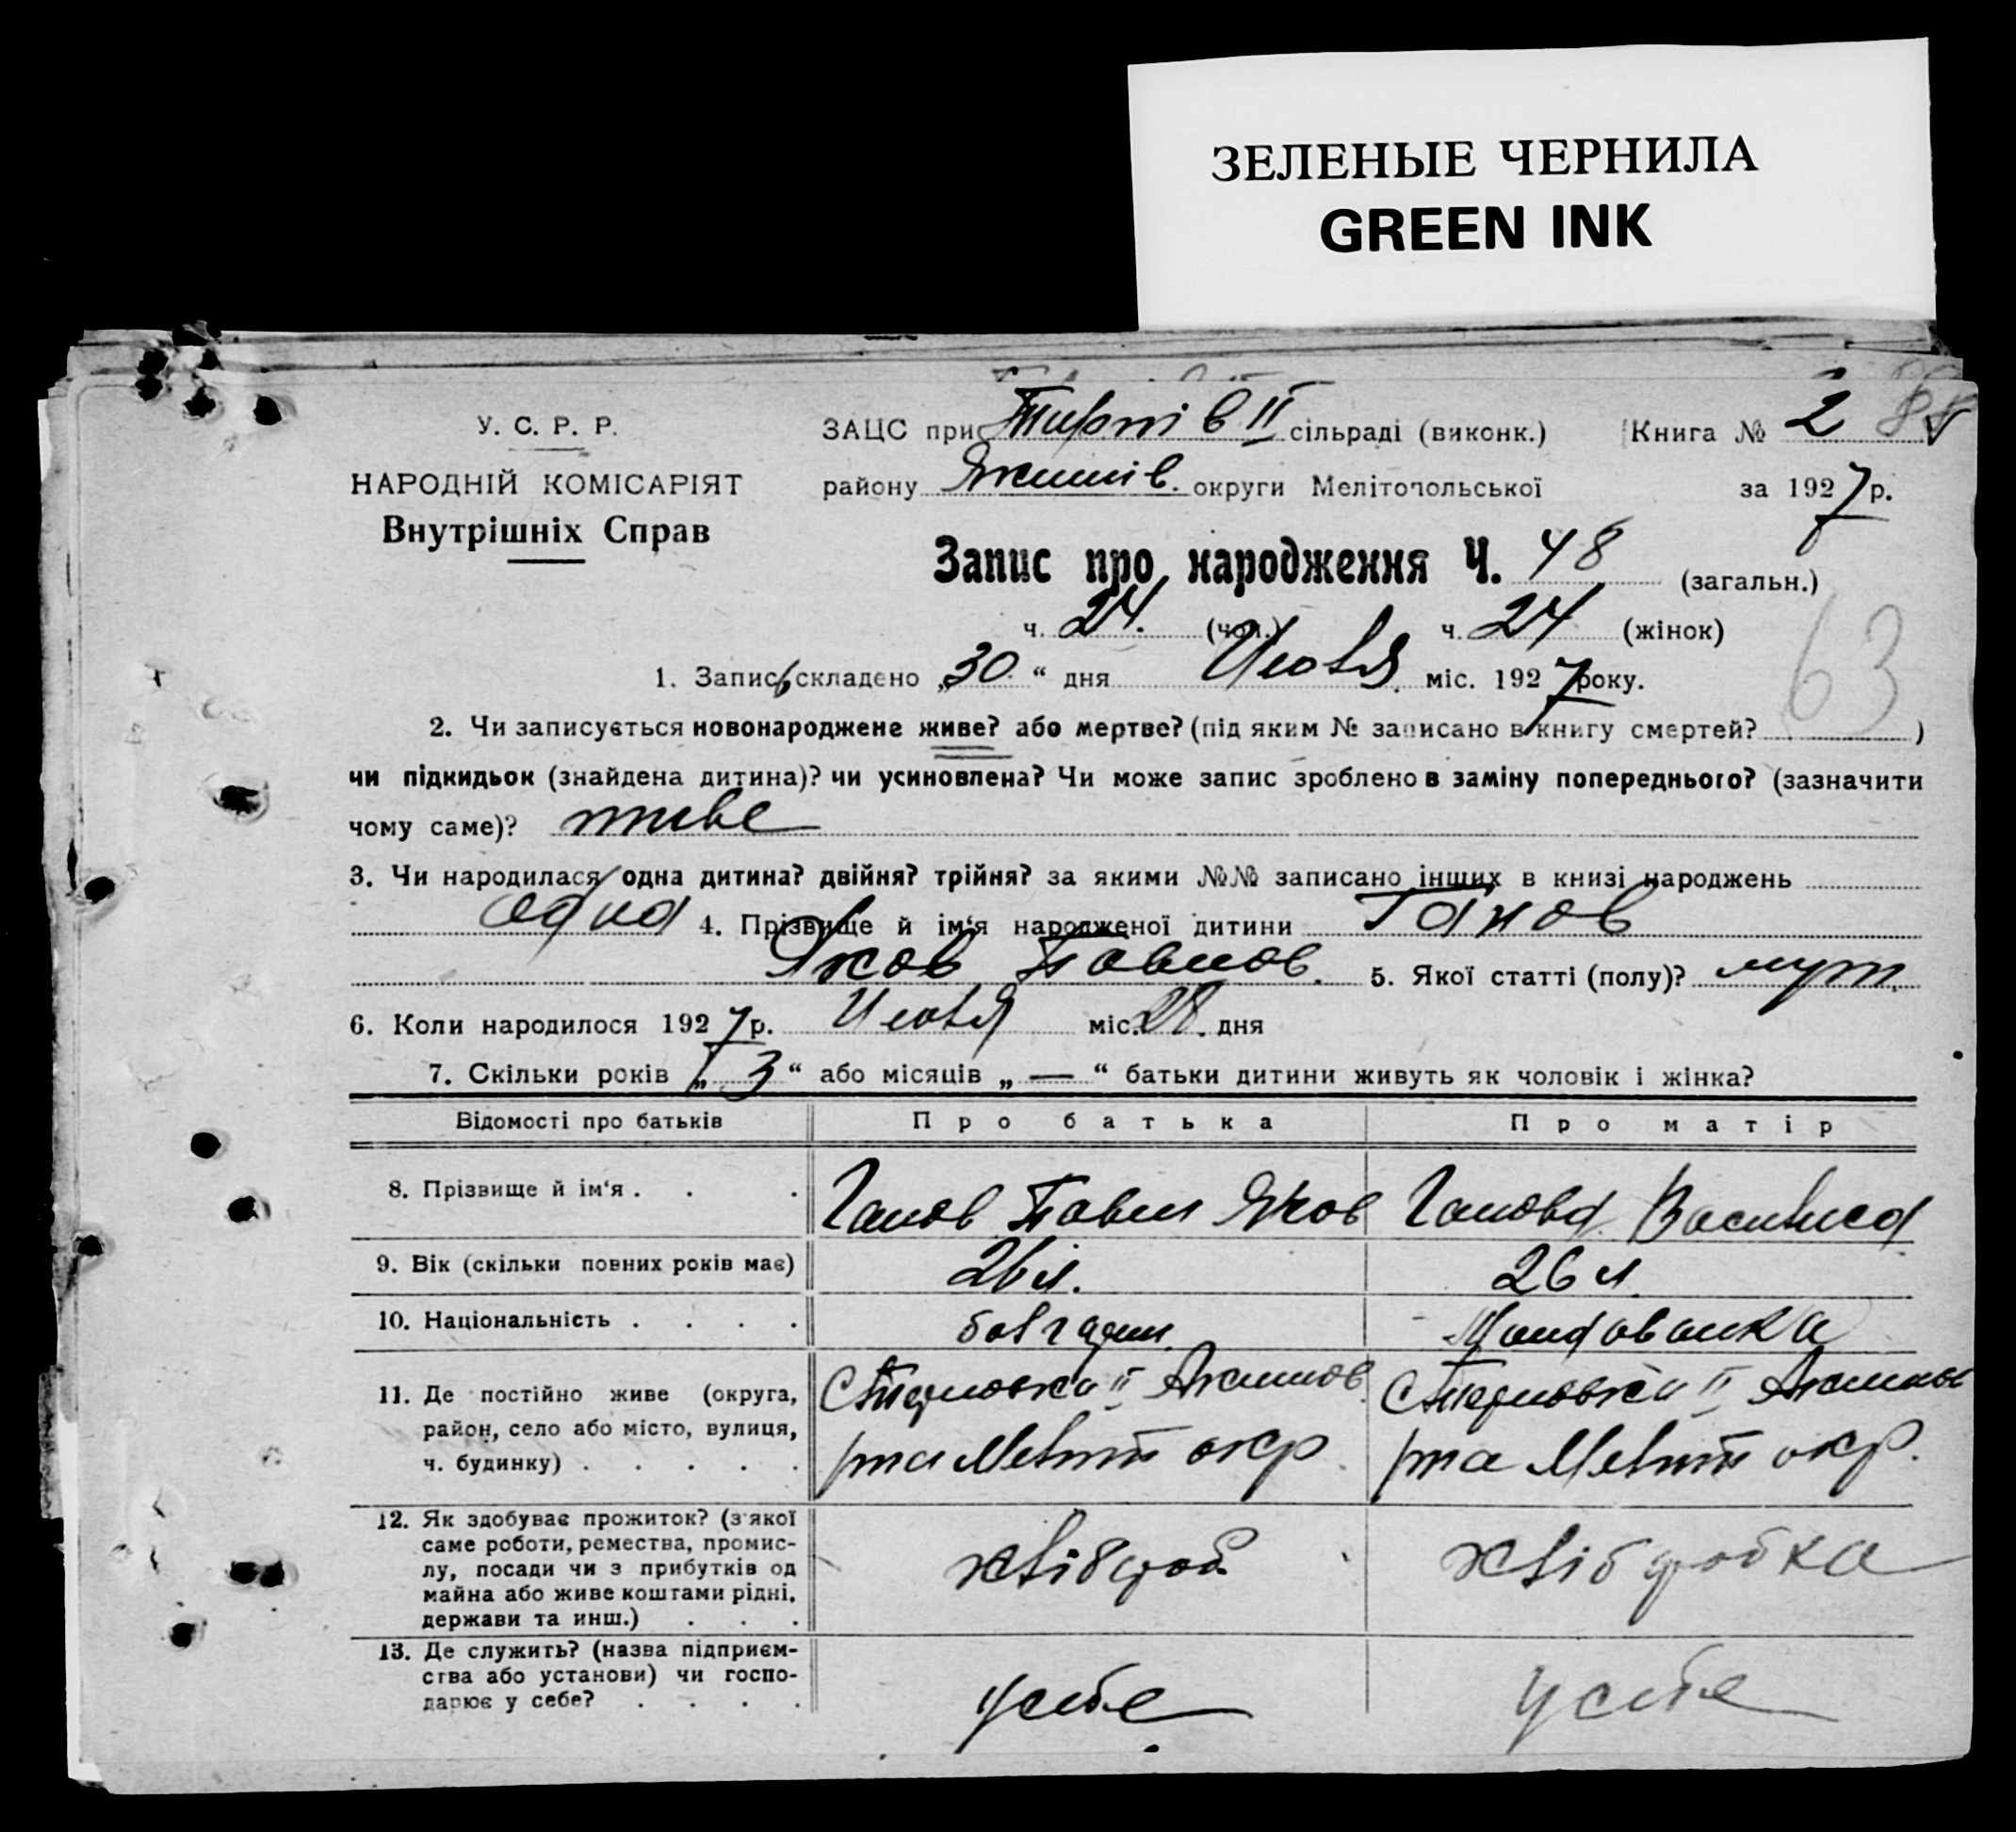 ЗЕЛЕНЫЕ ЧЕРНИЛА
GREEN INK
У. С. Р. Р.
НАРОДНІЙ КОМІСАРІЯТ
Внутрішніх Справ
ЗАЦС при Тирнів II сільраді (виконк.) Книга № 2
району Якимів. округи Мелітопольської за 1927 р.
Запис про народження Ч. 48 (загальн.)
ч. 24. (чол.) ч. 24 (жінок)
1. Запис складено „30“ дня Июля міс. 1927 року.
63
2. Чи записується новонароджене живе? або мертве? (під яким № записано в книгу смертей? )
чи підкидьок (знайдена дитина)? чи усиновлена? Чи може запис зроблено в заміну попереднього? (зазначити
чому саме)? живе
3. Чи народилася одна дитина? двійня? трійня? за якими №№ записано інших в книзі народжень
одна 4. Прізвище й ім‘я народженої дитини Ганов
Яков Павлов. 5. Якої статті (полу)? муж.
6. Коли народилося 1927 р. Июля міс. 28. дня
7. Скільки років „3“ або місяців „—“ батьки дитини живуть як чоловік і жінка?
Відомості про батьків Про батька Про матір
8. Прізвище й ім‘я . . . Ганов Павел Яков Ганова Василиса
9. Вік (скільки повних років має) 26 л. 26 л.
10. Національність . . . . болгарин.
11. Де постійно живе (округа, С Терновка II Якимов С Терновка II Якимов
район, село або місто, вулиця,
ч. будинку) . . . . . р-на Меліт окр. р-на Меліт окр.
12. Як здобуває прожиток? (з якої
саме роботи, ремества, промис-
лу, посади чи з прибутків од хлібороб хліборобка
майна або живе коштами рідні,
держави та инш.) . . .
13. Де служить? (назва підприєм-
ства або установи) чи госпо-
дарює у себе? . . . . у себе у себе